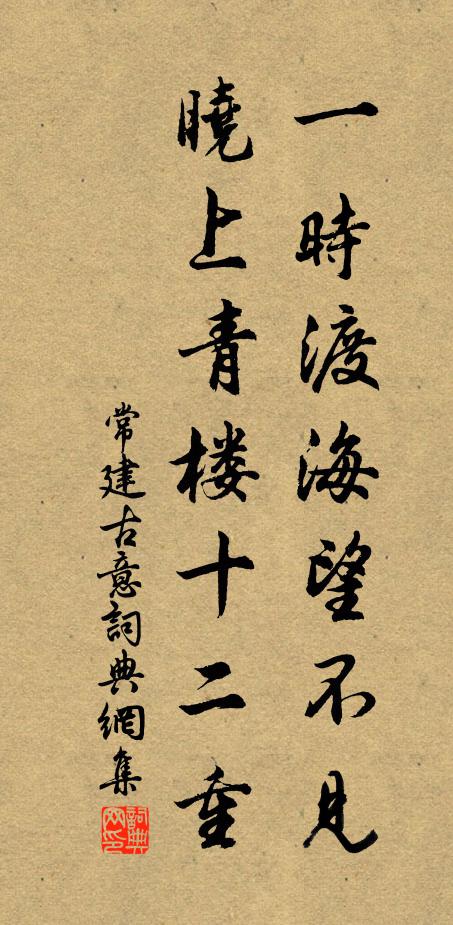 一時渡海望不見
曉上青楼十二重
常建古意詞典網集
詞典
网印